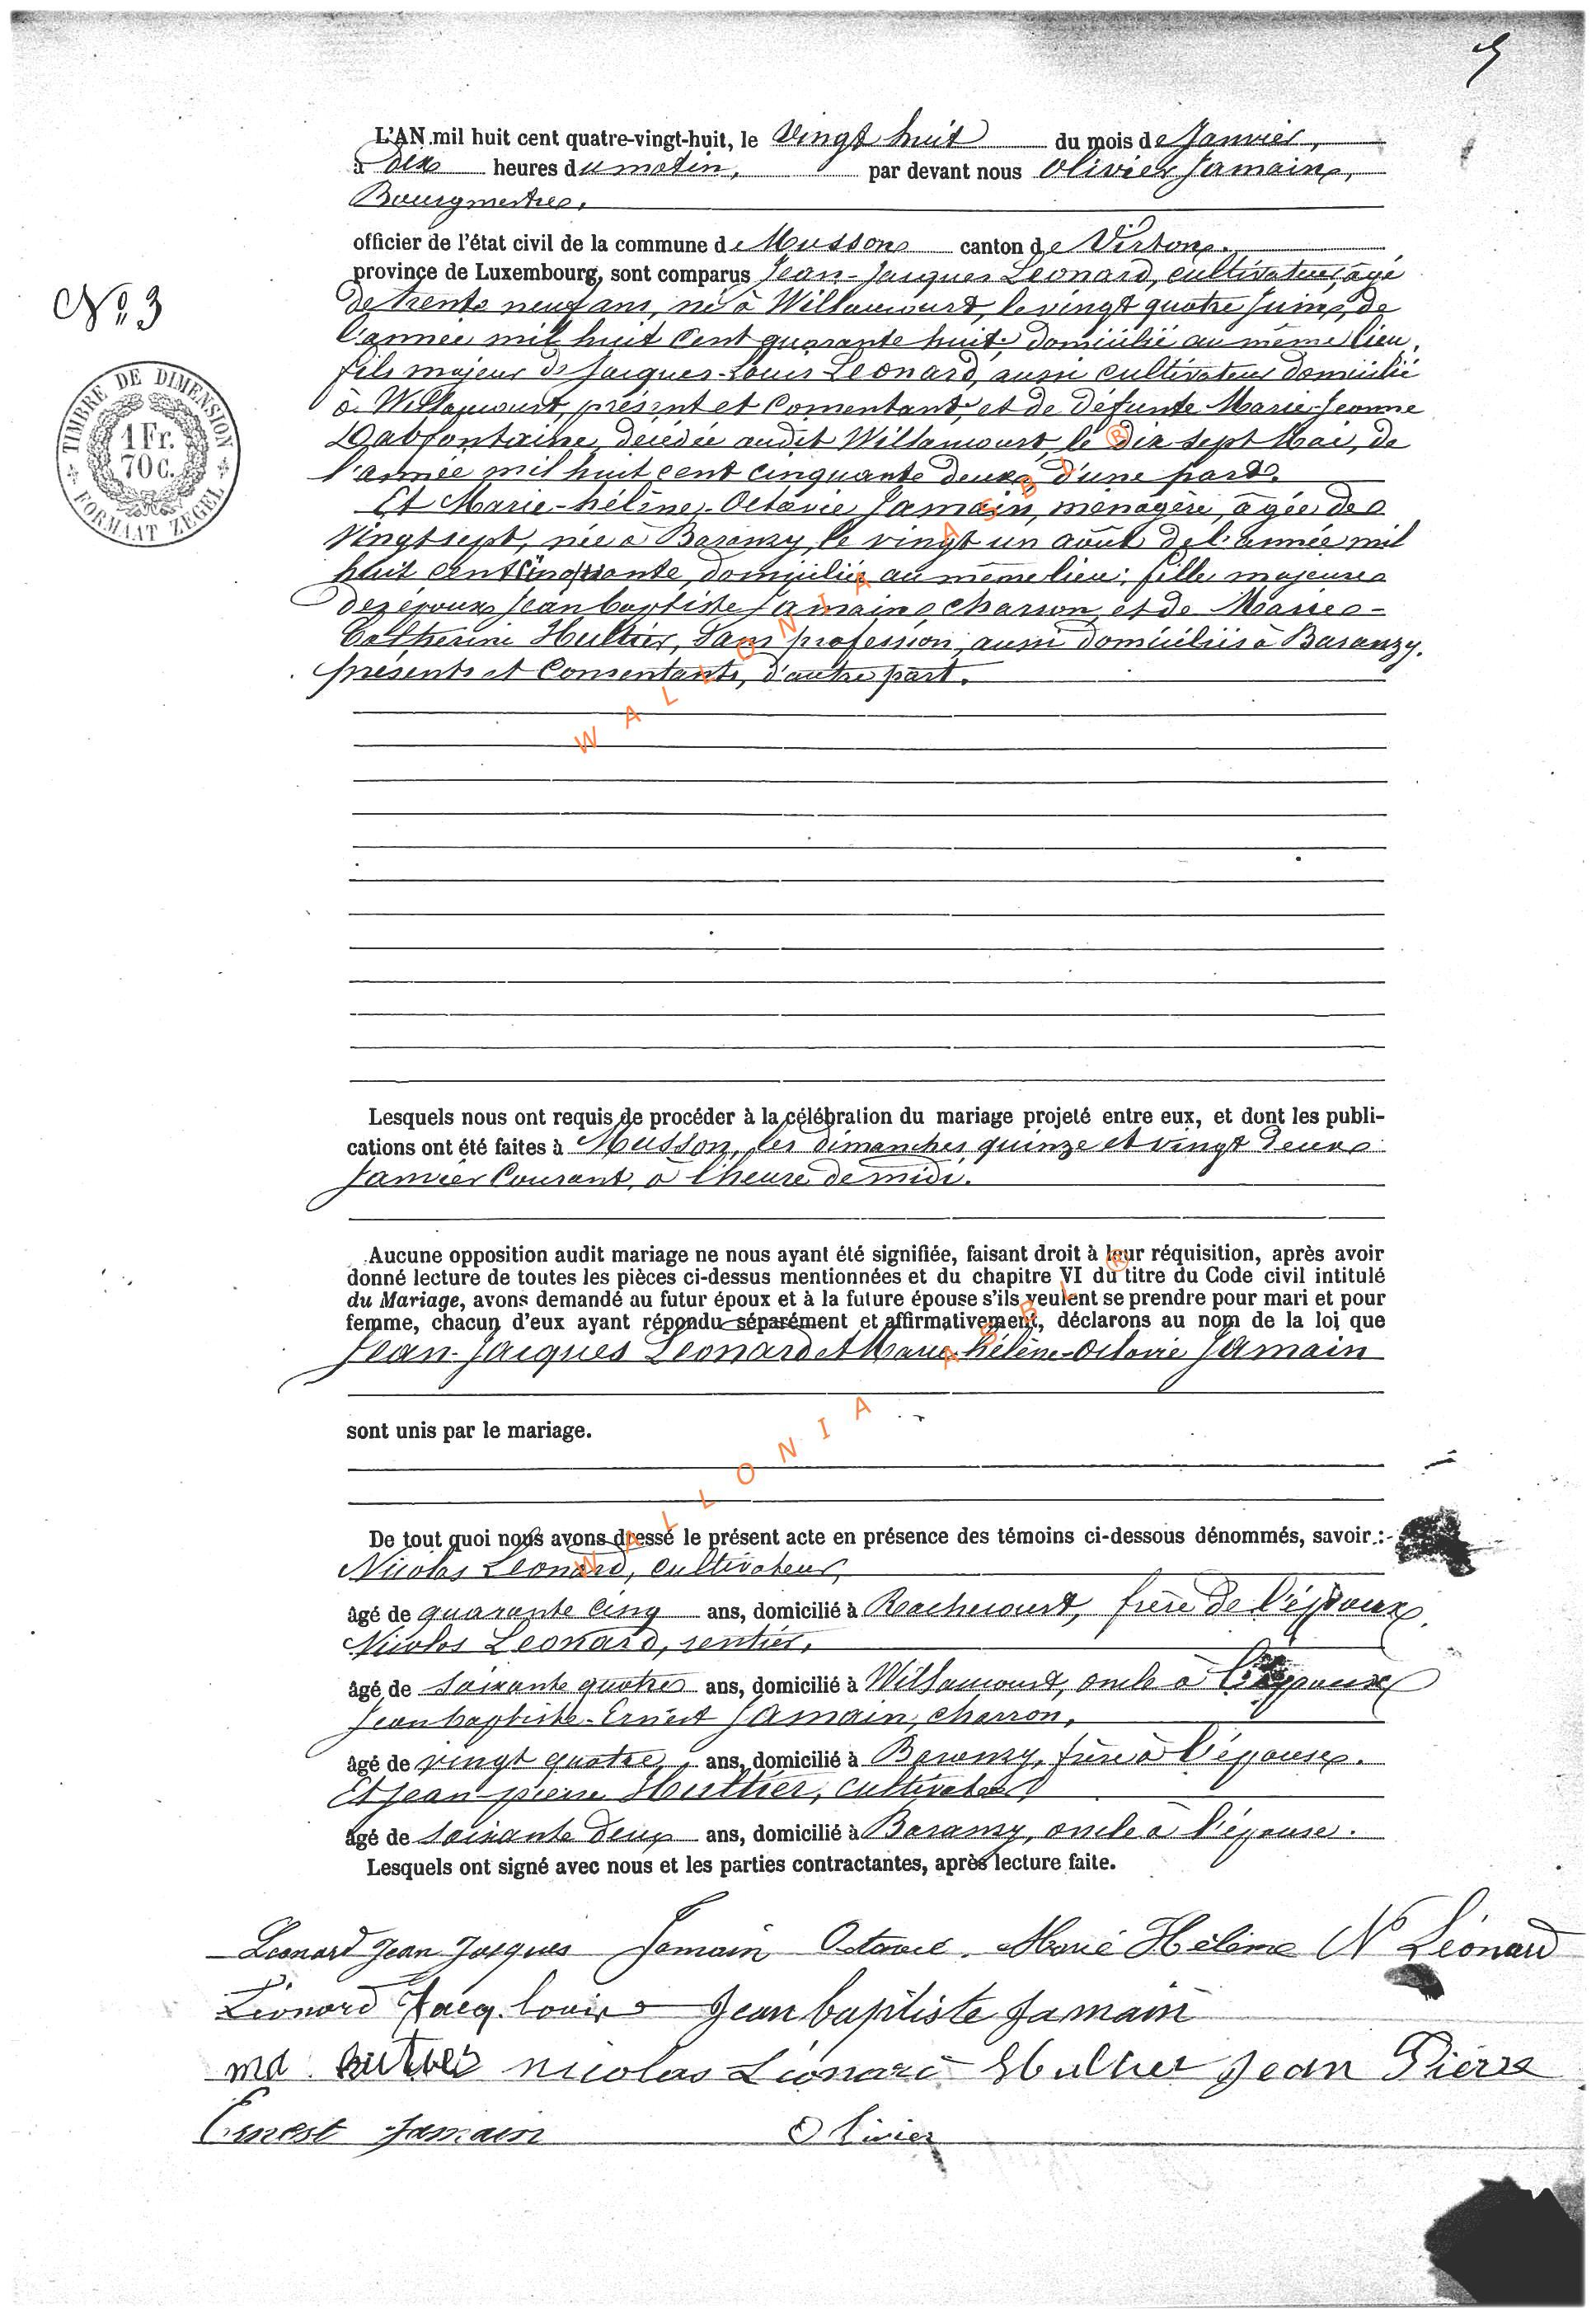 5
L'AN mil huit cent quatre-vingt-huit, le vingt huit du mois de Janvier,
à dix heures du matin, par devant nous Olivier Jamain,
Bourgmestre,
officier de l'état civil de la commune de Musson canton de Virton.
province de Luxembourg, sont comparus Jean-Jacques Leonard, cultivateur, âgé
N° 3
de trente neuf ans, né à Willancourt, le vingt quatre Juin, de
l'année mil huit cent quarante huit, domicilié au même lieu,
fils majeur de Jacques-Louis Leonard, aussi cultivateur domicilié
à Willancourt, présent et consentant, et de défunte Marie-Jeanne
décédée audit Willancourt, le dix sept Mai, de
l'année mil huit cent cinquante deux, d'une part.
Et Marie-hélène-Octavie Jamain, ménagère, âgée de
vingt sept, née à Baranzy, le vingt un août de l'année mil
huit cent domiciliée au même lieu; fille majeure
des époux Jean baptiste Jamain, charron, et de Marie-
Catherine Hultier, sans profession, aussi domiciliés à Baranzy.
présents et consentants, d'autre part.
TIMBRE DE DIMENSION
1 Fr.
70 C.
FORMAAT ZEGEL
WALLONIA ASBL ®
Lesquels nous ont requis de procéder à la célébration du mariage projeté entre eux, et dont les publi-
cations ont été faites à Musson, les dimanches quinze et vingt deux
Janvier Courant, à l'heure de midi.
Aucune opposition audit mariage ne nous ayant été signifiée, faisant droit à leur réquisition, après avoir
donné lecture de toutes les pièces ci-dessus mentionnées et du chapitre VI du titre du Code civil intitulé
du Mariage, avons demandé au futur époux et à la future épouse s'ils veulent se prendre pour mari et pour
femme, chacun d'eux ayant répondu séparément et affirmativement, déclarons au nom de la loi que
Jean-Jacques Leonard et Marie-hélène-Octavie Jamain
sont unis par le mariage.
WALLONIA ASBL ®
De tout quoi nous avons dressé le présent acte en présence des témoins ci-dessous dénommés, savoir :
Nicolas Leonard, cultivateur,
âgé de quarante cinq ans, domicilié à Rachecourt, frère de l'époux,
Nicolas Leonard, rentier,
âgé de soixante quatre ans, domicilié à Willancourt, oncle à l'époux
Jean baptiste-Ernest Jamain, charron,
âgé de vingt quatre, ans, domicilié à Baranzy, frère à l'épouse.
Et Jean-pierre Hultier, cultivateur
âgé de soixante deux ans, domicilié à Baranzy, oncle à l'épouse.
Lesquels ont signé avec nous et les parties contractantes, après lecture faite.
Leonard Jean Jacques Jamain Octavie Marie Hélène N Léonard
Léonard Jacq. Louis Jean baptiste Jamain
nicolas Léonard Hultier Jean Pierre
Ernest Jamain Olivier